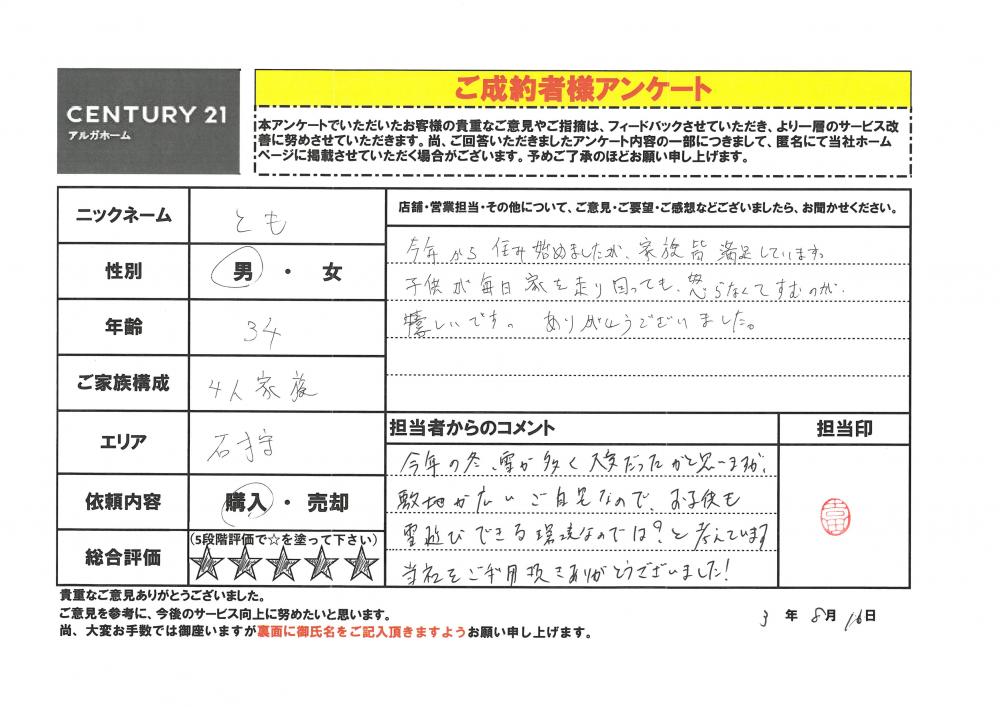 CENTURY 21
アルガホーム
ご成約者様アンケート
本アンケートでいただいたお客様の貴重なご意見やご指摘は、フィードバックさせていただき、より一層のサービス改
善に努めさせていただきます。尚、ご回答いただきましたアンケート内容の一部につきまして、匿名にて当社ホーム
ページに掲載させていただく場合がございます。予めご了承のほどお願い申し上げます。
ニックネーム
とも
性別
男 ・ 女
年齢
34
ご家族構成
4人家族
エリア
石狩
依頼内容
購入 ・ 売却
総合評価
(5段階評価で☆を塗って下さい)
店舗・営業担当・その他について、ご意見・ご要望・ご感想などございましたら、お聞かせください。
今年から住み始めましたが、家族皆満足しています。
子供が毎日家を走り回っても、怒らなくてすむのが、
嬉しいです。ありがとうございました。
担当者からのコメント
今年の冬、雪が多く大変だったかと思いますが、
敷地が広いご自宅なので、お子供も
雪遊びできる環境なのでは?と考えています
当社をご利用頂きありがとうございました!
担当印
貴重なご意見ありがとうございました。
ご意見を参考に、今後のサービス向上に努めたいと思います。
尚、大変お手数では御座いますが裏面に御氏名をご記入頂きますようお願い申し上げます。
3 年 8月 16日